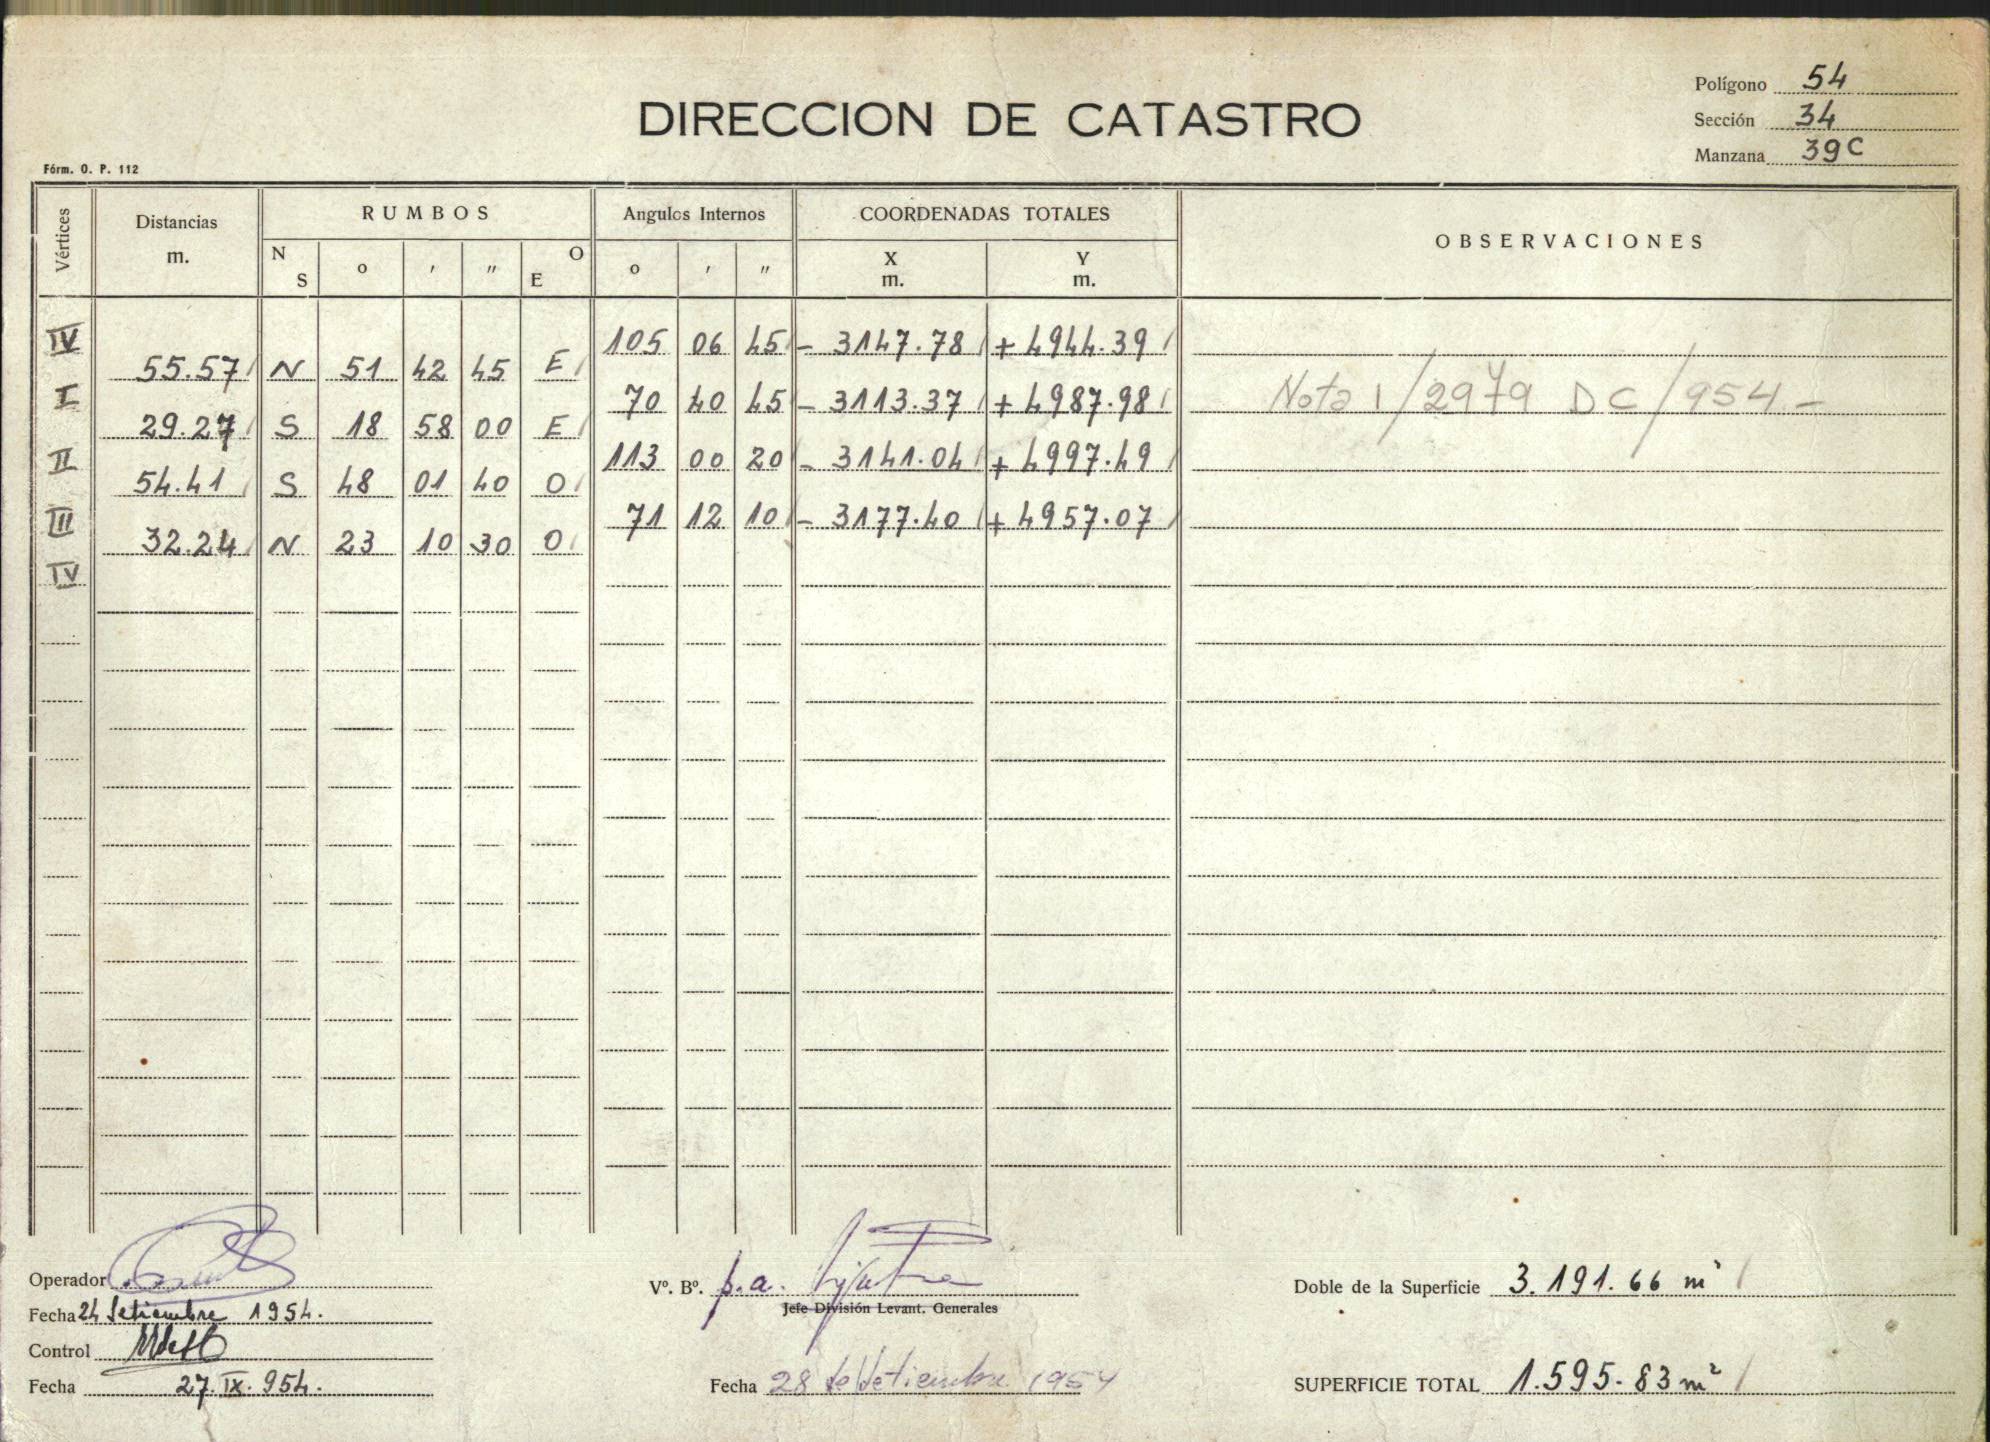 Polígono 54
DIRECCION DE CATASTRO
Sección 34
Manzana 39C
Fórm. O. P. 112
Vértices Distancias m. RUMBOS Angulos Internos COORDENADAS TOTALES OBSERVACIONES
N S o ' " O E o ' " X m. Y m.
IV 105 06 45 - 3147.78 + 4944.39
55.57 N 51 42 45 E
I 70 40 45 - 3113.37 + 4987.98 Nota 1/2979 DC/954.-
29.27 S 18 58 00 E
II 113 00 20 - 3141.04 + 4997.49
54.41 S 48 01 40 O
III 71 12 10 - 3177.40 + 4957.07
32.24 N 23 10 30 O
IV
Operador Vº. Bº. p.a. Doble de la Superficie 3.191.66 m²
Jefe División Levant. Generales
Fecha 24 Setiembre 1954.
Control
Fecha 27.IX.954. Fecha 28 de Setiembre 1954 SUPERFICIE TOTAL 1.595.83 m²